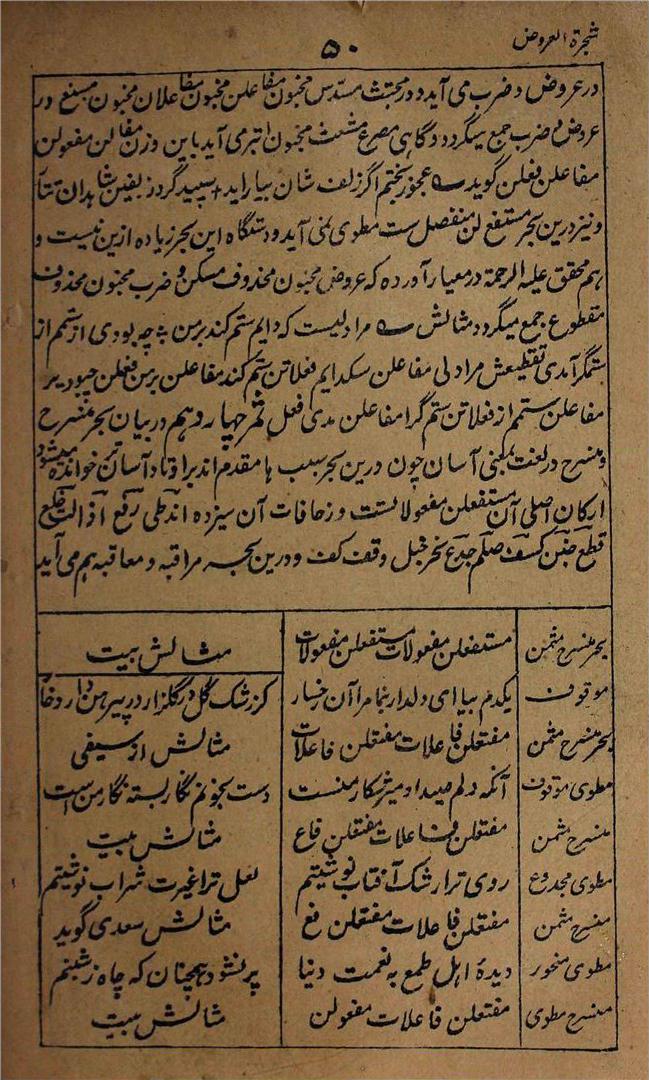 شجرة العروض
۵۰
در عروض و ضرب می آید و در مجتث مسدس مخبون مفاعلن مخبون مفاعلان مخبون مسبغ در
عروض و ضرب جمع میگردد و گاهی مصرع مشعث مخبون ابتر می آید باین وزن مفاعلن مفعولن
مفاعلن فعلن گوید عجوز بختم اگر زلف شان بیاراید سپید گردد زلفین شاهدان تتار
و نیز درین بحر مستفع لن منفصل ست مطوی نمی آید و دستگاه این بحر زیاده ازین نیست و
هم محقق علیه الرحمة در معیار آورده که عروض مخبون محذوف مسکن و ضرب مخبون محذوف
مقطوع جمع میگردد مثالش مراد لیست که دایم ستم کند بر من چه بودی از ستم از
ستمگر آمدی تقطیعش مراد لی مفاعلن سکدایم فعلاتن ستم کند مفاعلن بر من فعلن چبودیر
مفاعلن ستم از فعلاتن ستم گرا مفاعلن مدی فعل ثمر چهاردهم در بیان بحر منسرح
و منسرح در لغت بمعنی آسان چون درین بحر سبب ها مقدم اند بر اوتاد آسان تر خوانده میشود
ارکان اصلی آن مستفعلن مفعولاتست و زحافات آن سیزده اند طی رفع اذالت قطع
قطع خبن کسف صلم جدع نحر خبل وقف کف و درین بحر مراقبه و معاقبه هم می آید
بحر منسرح مثمن مستفعلن مفعولات مستفعلن مفعولات مثالش بیت
موقوف یکدم بیا ای دلدار بنما مرا آن رخسار کز رشک گل در گلزار در پیرهن دارد خار
بحر منسرح مثمن مفتعلن فاعلات مفتعلن فاعلات مثالش از سیفی
مطوی موقوف آنکه دلم صید اوست میر شکار منست دست بخونم نگار بسته نگار من است
منسرح مثمن مفتعلن فاعلات مفتعلن فاع مثالش بیت
مطوی مجدوع روی ترا رشک آفتاب نوشتیم لعل ترا غیرت شراب نوشتیم
منسرح مثمن مفتعلن فاعلات مفتعلن فع مثالش سعدی گوید
مطوی منحور دیدهٔ اهل طمع به نعمت دنیا پر نشود همچنان که چاه ز شبنم
منسرح مطوی مفتعلن فاعلات مفعولن مثالش بیت